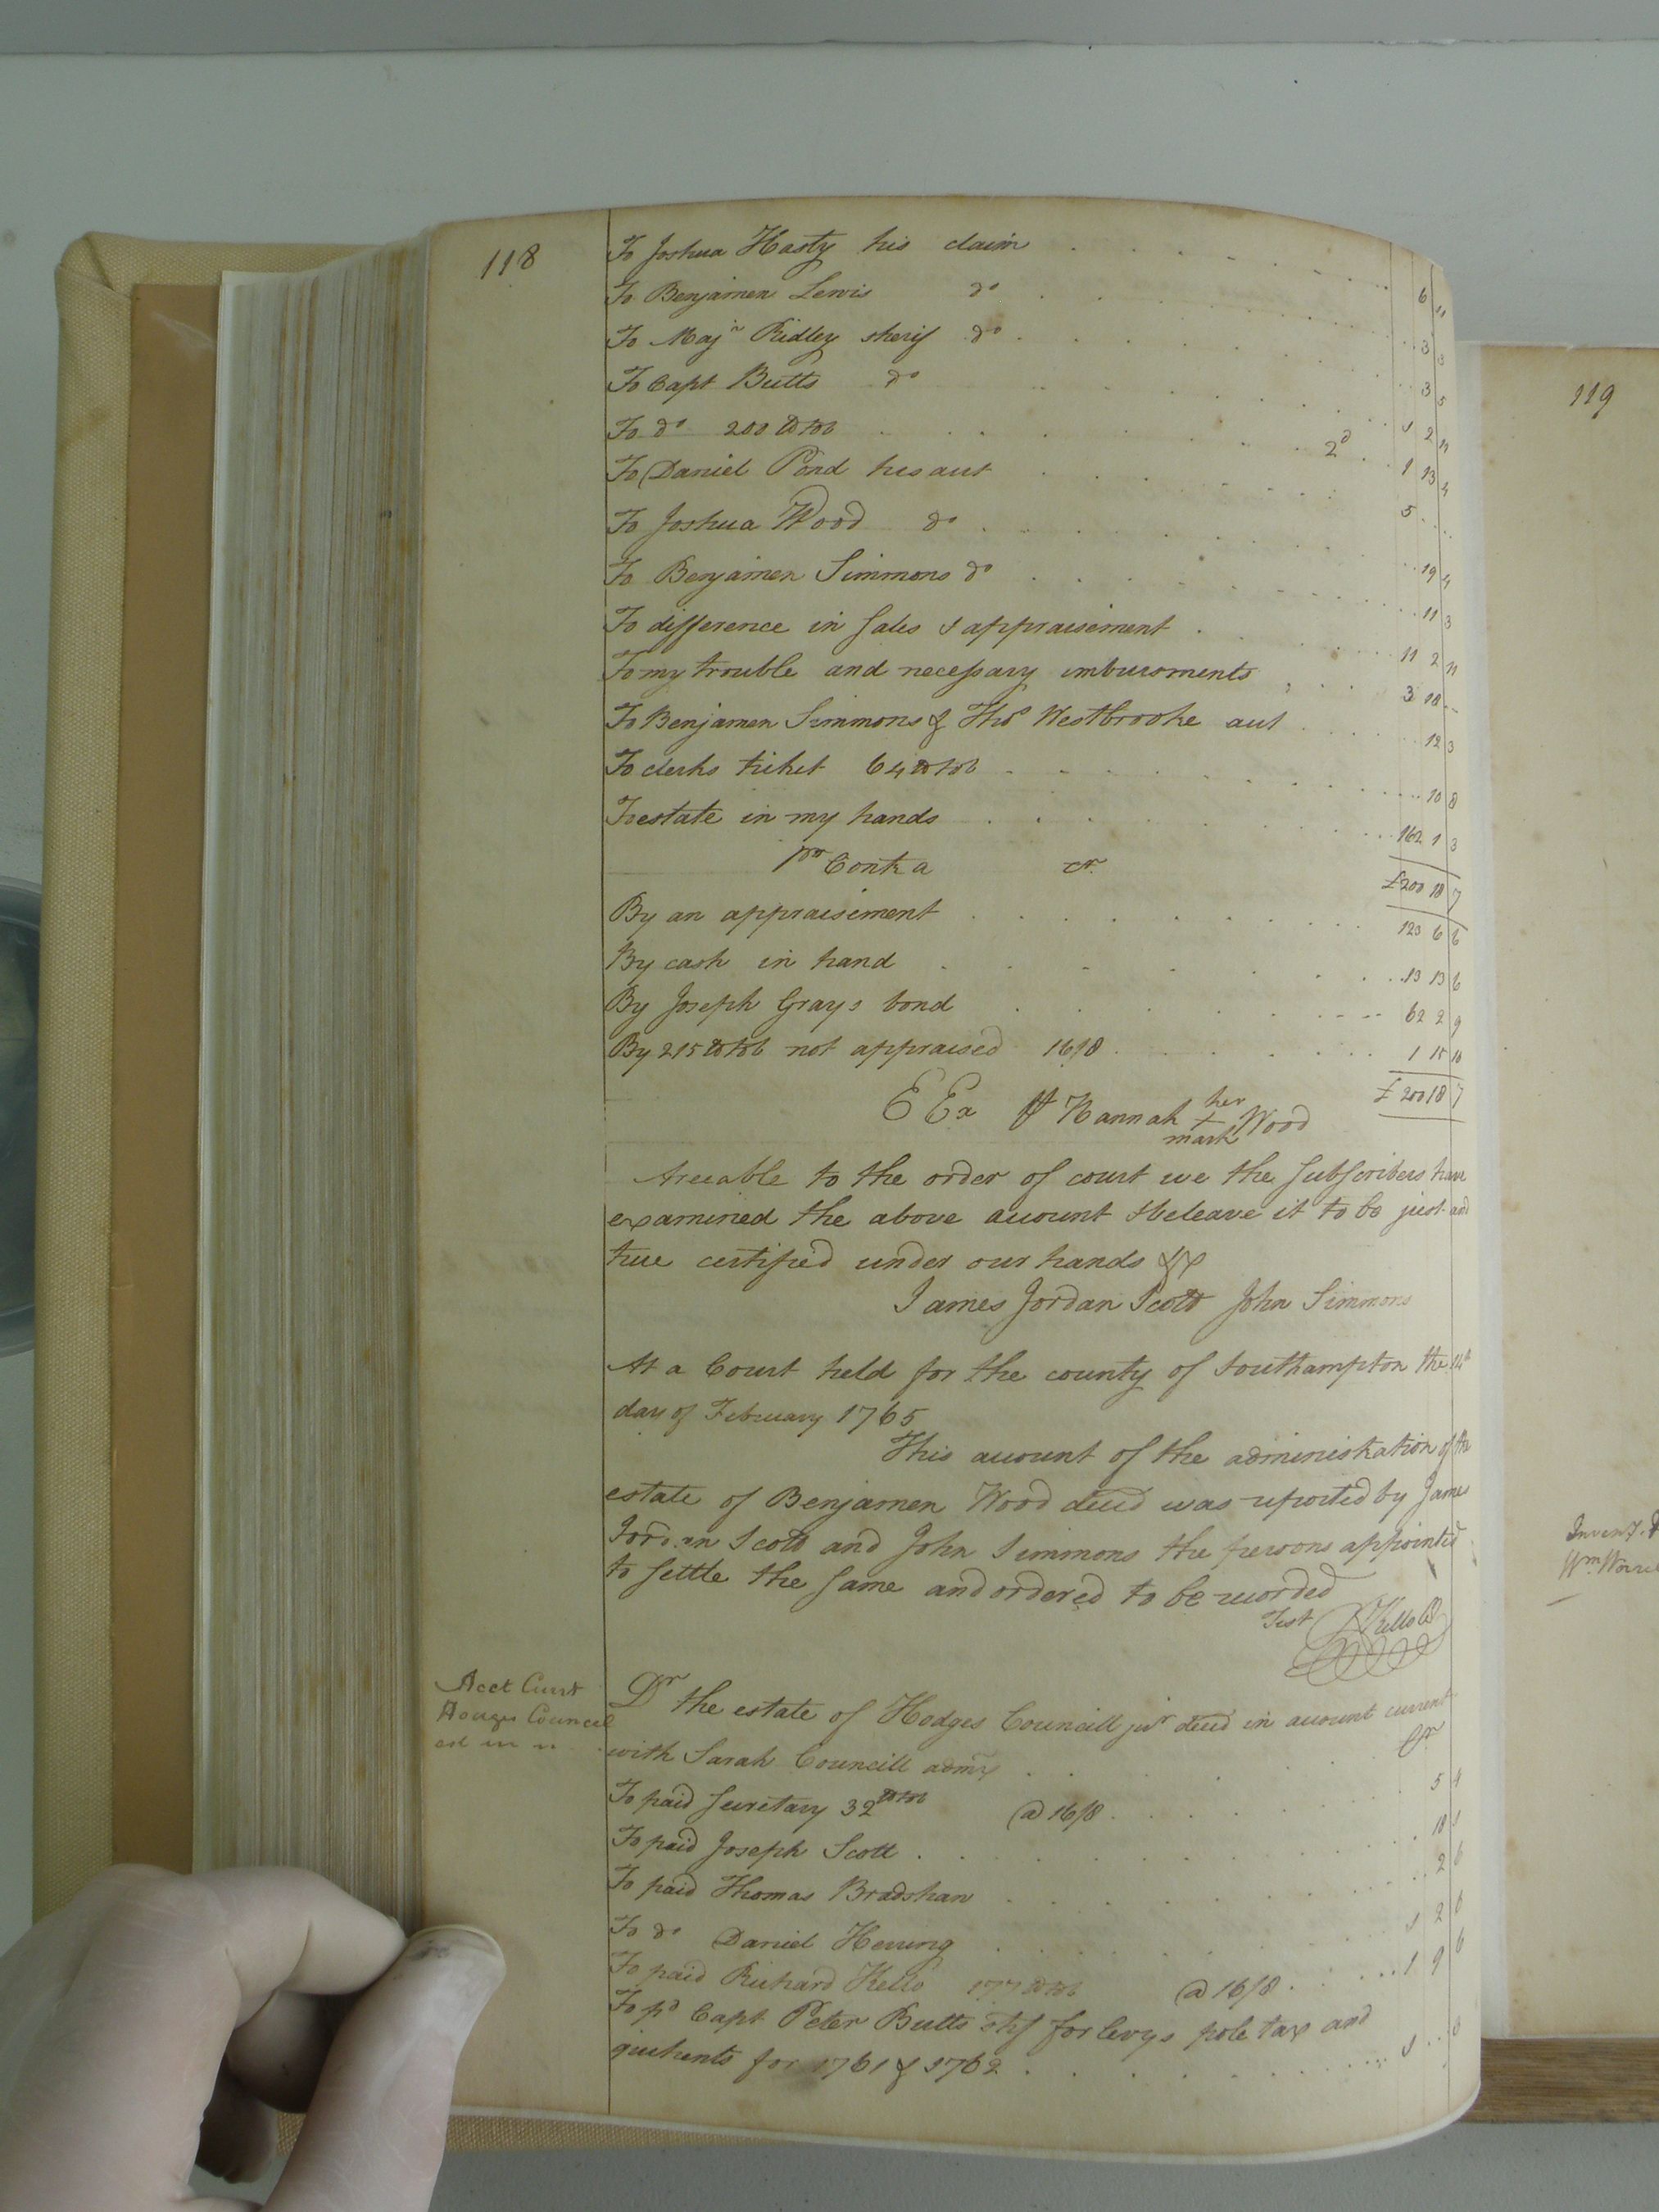 118
To Joshua Hasty his claim . . . 6 11
To Benjamen Lewis do . . . 3 3
To Majr Ridley sherif do . . . 3 5
To Capt Butts do . . . 1 2 11
To do 200 lb tob . . . 2d . . 1 13 4
To Daniel Pond his aut . . . 5 . . .
To Joshua Wood do . . . 19 4
To Benjamen Simmons do . . . 11 3
To difference in sales & appraisement . . . 11 2 11
To my trouble and necessary imbursments . . . 3 18 --
To Benjamen Simmons & Thos Westbrooke aut . . . 12 3
To clerks ticket 64 lb tob . . . 10 8
To estate in my hands . . . 162 1 3
£200 18 7
pr Contra cr
By an appraisement . . . 123 6 6
By cash in hand . . . 13 13 6
By Joseph Grays bond . . . 62 2 9
By 215 lb tob not appraised 16/8 . . . 1 15 10
£200 18 7
E Ex Hannah her + mark Wood
Areeable to the order of court we the subscribers have
examined the above account & beleave it to be just and
true certified under our hands &c
James Jordan Scott John Simmons
At a Court held for the county of Southampton the 14th
day of February 1765
This account of the administration of the
estate of Benjamen Wood decd was reported by James
Jordan Scott and John Simmons the persons appointed
to settle the same and ordered to be recorded
Test RKello CC
Acct Curt
Hodges Councel
Dr the estate of Hodges Councill junr decd in account current
with Sarah Councill admx . . . Cr
To paid secretary 32 lb tob @ 16/8 . . . 5 4
To paid Joseph Scott . . . 18 1
To paid Thomas Bradshaw . . . 2 6
To do Daniel Herring . . . 1 2 6
To paid Richard Kello 177 lb tob @ 16/8 . . . 1 9 6
To pd Capt Peter Butts shf for levys pole tax and
quitrents for 1761 & 1762 . . . 1
119
Inven.y
Wm Worrel